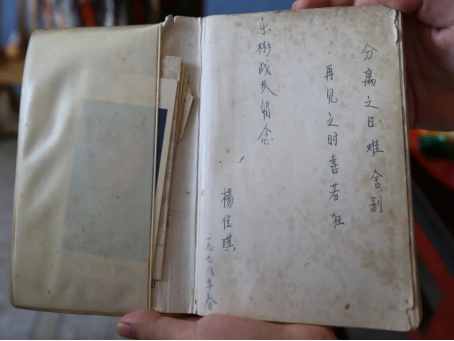 分离之日难舍别
再见之时喜若狂
乐彬战友留念
楊佳琪
一九七八年春